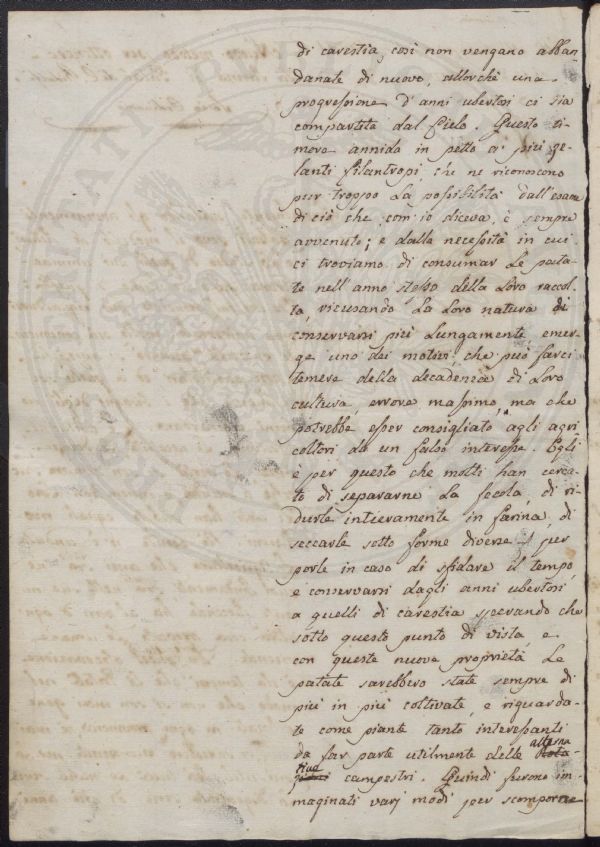 di carestia, così non vengano abban-
danate di nuovo, allorchè una
progressione d'anni ubertosi ci sia
compartita dal Cielo. Questo ti-
more annida in petto a' più ze-
lanti filantropi, che ne riconoscono
pur troppo la possibilità dall'esame
di ciò che, com'io diceva, è sempre
avvenuto; e dalla necessità in cui
ci troviamo di consumar le pata-
te nell'anno stesso della loro raccol-
ta, ricusando la loro natura di
conservarsi più lungamente, emer-
ge uno dei motivi, che può farci
temere della decadenza di loro
cultura, errore massimo, ma che
potrebbe esser consigliato agli agri-
coltori da un falso interesse. Egli
è per questo che molti han cerca-
to di separarne la fecola, di ri-
durle intieramente in farina, di
seccarle sotto forme diverse per
porle in caso di sfidare il tempo,
e conservarsi dagli anni ubertosi
a quelli di carestia sperando che
sotto questo punto di vista, e
con queste nuove proprietà le
patate sarebbero state sempre di
più in più coltivate, e riguarda-
te come piante tanto interessanti
da far parte utilmente delle alterna-
tive campestri. Quindi furono im-
maginati varj modi per scomporne